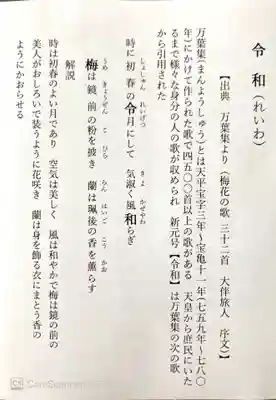 令和(れいわ)
【出典 万葉集より(梅花の歌 三十二首 大伴旅人 序文)】
万葉集(まんようしゅう)とは天平宝字三年~宝亀十一年(七五九年~七八〇
年)にかけて作られた歌で四五〇〇首以上の歌がある 天皇から庶民にいた
るまで様々な身分の人の歌が収められ 新元号【令和】は万葉集の次の歌
から引用された
時に初春の令月にして 気淑く風和らぎ
しょしゅん れいげつ さよ かぜやわ
梅は鏡前の粉を披き 蘭は珮後の香を薫らす
うめ きょうぜん こ ひら らん はいご こう かお
解説
時は初春のよい月であり 空気は美しく 風は和やかで梅は鏡の前の
美人がおしろいで装うように花咲き 蘭は身を飾る衣にまとう香の
ようにかおらせる
CS CamScanner